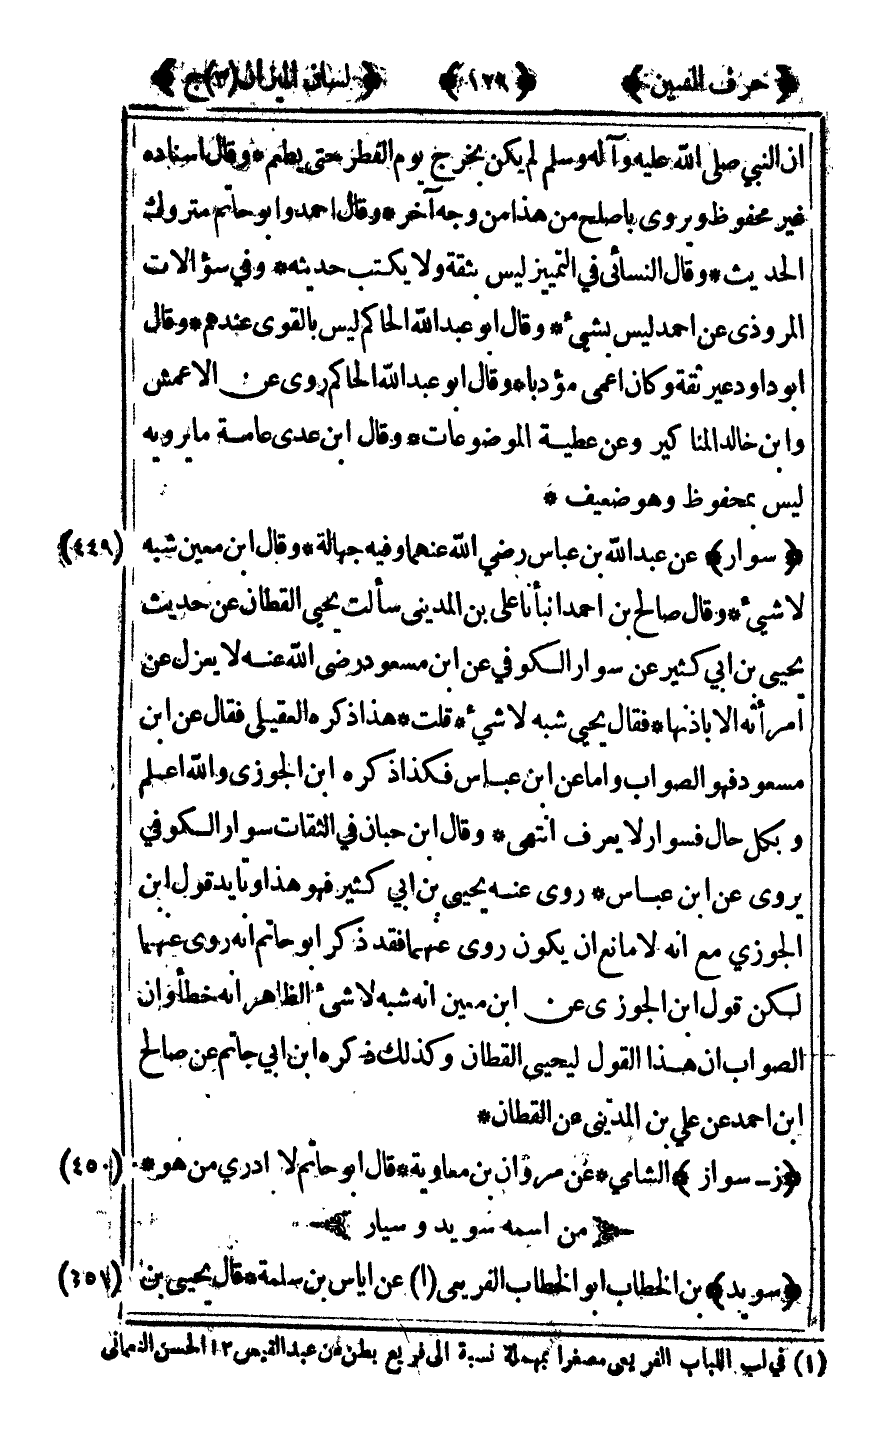 ﴿ حرف السين ﴾ ﴿ ١٢٩ ﴾ ﴿ لسان الميزان (٣) ج ﴾
ان النبي صلى الله عليه وآله وسلم لم يكن يخرج يوم الفطر حتى يطعم * وقال اسناده
غير محفوظ ويروى باصلح من هذا من وجه آخر * وقال احمد وابو حاتم متروك
الحديث * وقال النسائى في التمييز ليس بثقة ولا يكتب حديثه * وفي سؤالات
المروذى عن احمد ليس بشيء * وقال ابو عبد الله الحاكم ليس بالقوى عندهم * وقال
ابو داود غير ثقة وكان اعمى مؤدبا * وقال ابو عبد الله الحاكم روى عن الاعمش
وابن خالد المناكير وعن عطية الموضوعات * وقال ابن عدى عامة مايرويه
ليس بمحفوظ وهو ضعيف *
﴿ سوار ﴾ عن عبد الله بن عباس رضي الله عنهما وفيه جهالة * وقال ابن معين شبه (٤٤٩)
لا شيء * وقال صالح بن احمد انبأنا على بن المدينى سألت يحيى القطان عن حديث
يحيى بن ابي كثير عن سوار الكوفي عن ابن مسعود رضى الله عنه لا يعزل عن
امرأته الا باذنها * فقال يحيى شبه لا شيء * قلت * هذا ذكره العقيلى فقال عن ابن
مسعود فهو الصواب واما عن ابن عباس فكذا ذكره ابن الجوزى والله اعلم
وبكل حال فسوار لا يعرف انتهى * وقال ابن حبان في الثقات سوار الكوفي
يروى عن ابن عباس * روى عنه يحيى بن ابي كثير فهو هذا وتايد قول ابن
الجوزي مع انه لا مانع ان يكون روى عنهما فقد ذكر ابو حاتم انه روى عنهما
لكن قول ابن الجوزى عن ابن معين انه شبه لا شيء الظاهر انه خطأ وان
الصواب ان هذا القول ليحيى القطان وكذلك ذكره ابن ابي حاتم عن صالح
ابن احمد عن علي بن المدينى عن القطان *
﴿ ز ـ سوار ﴾ الشامي * عن مروان بن معاوية * قال ابو حاتم لا ادري من هو * (٤٥٠)
من اسمه سويد و سيار
﴿ سويد ﴾ بن الخطاب ابو الخطاب القريعى (١) عن اياس بن سلمة * قال يحيى بن (٤٥١)
(١) في لب اللباب القريعى مصغرا بمهملة نسبة الى قريع بطن من عبد القيس ١٢ الحسن النعمانى